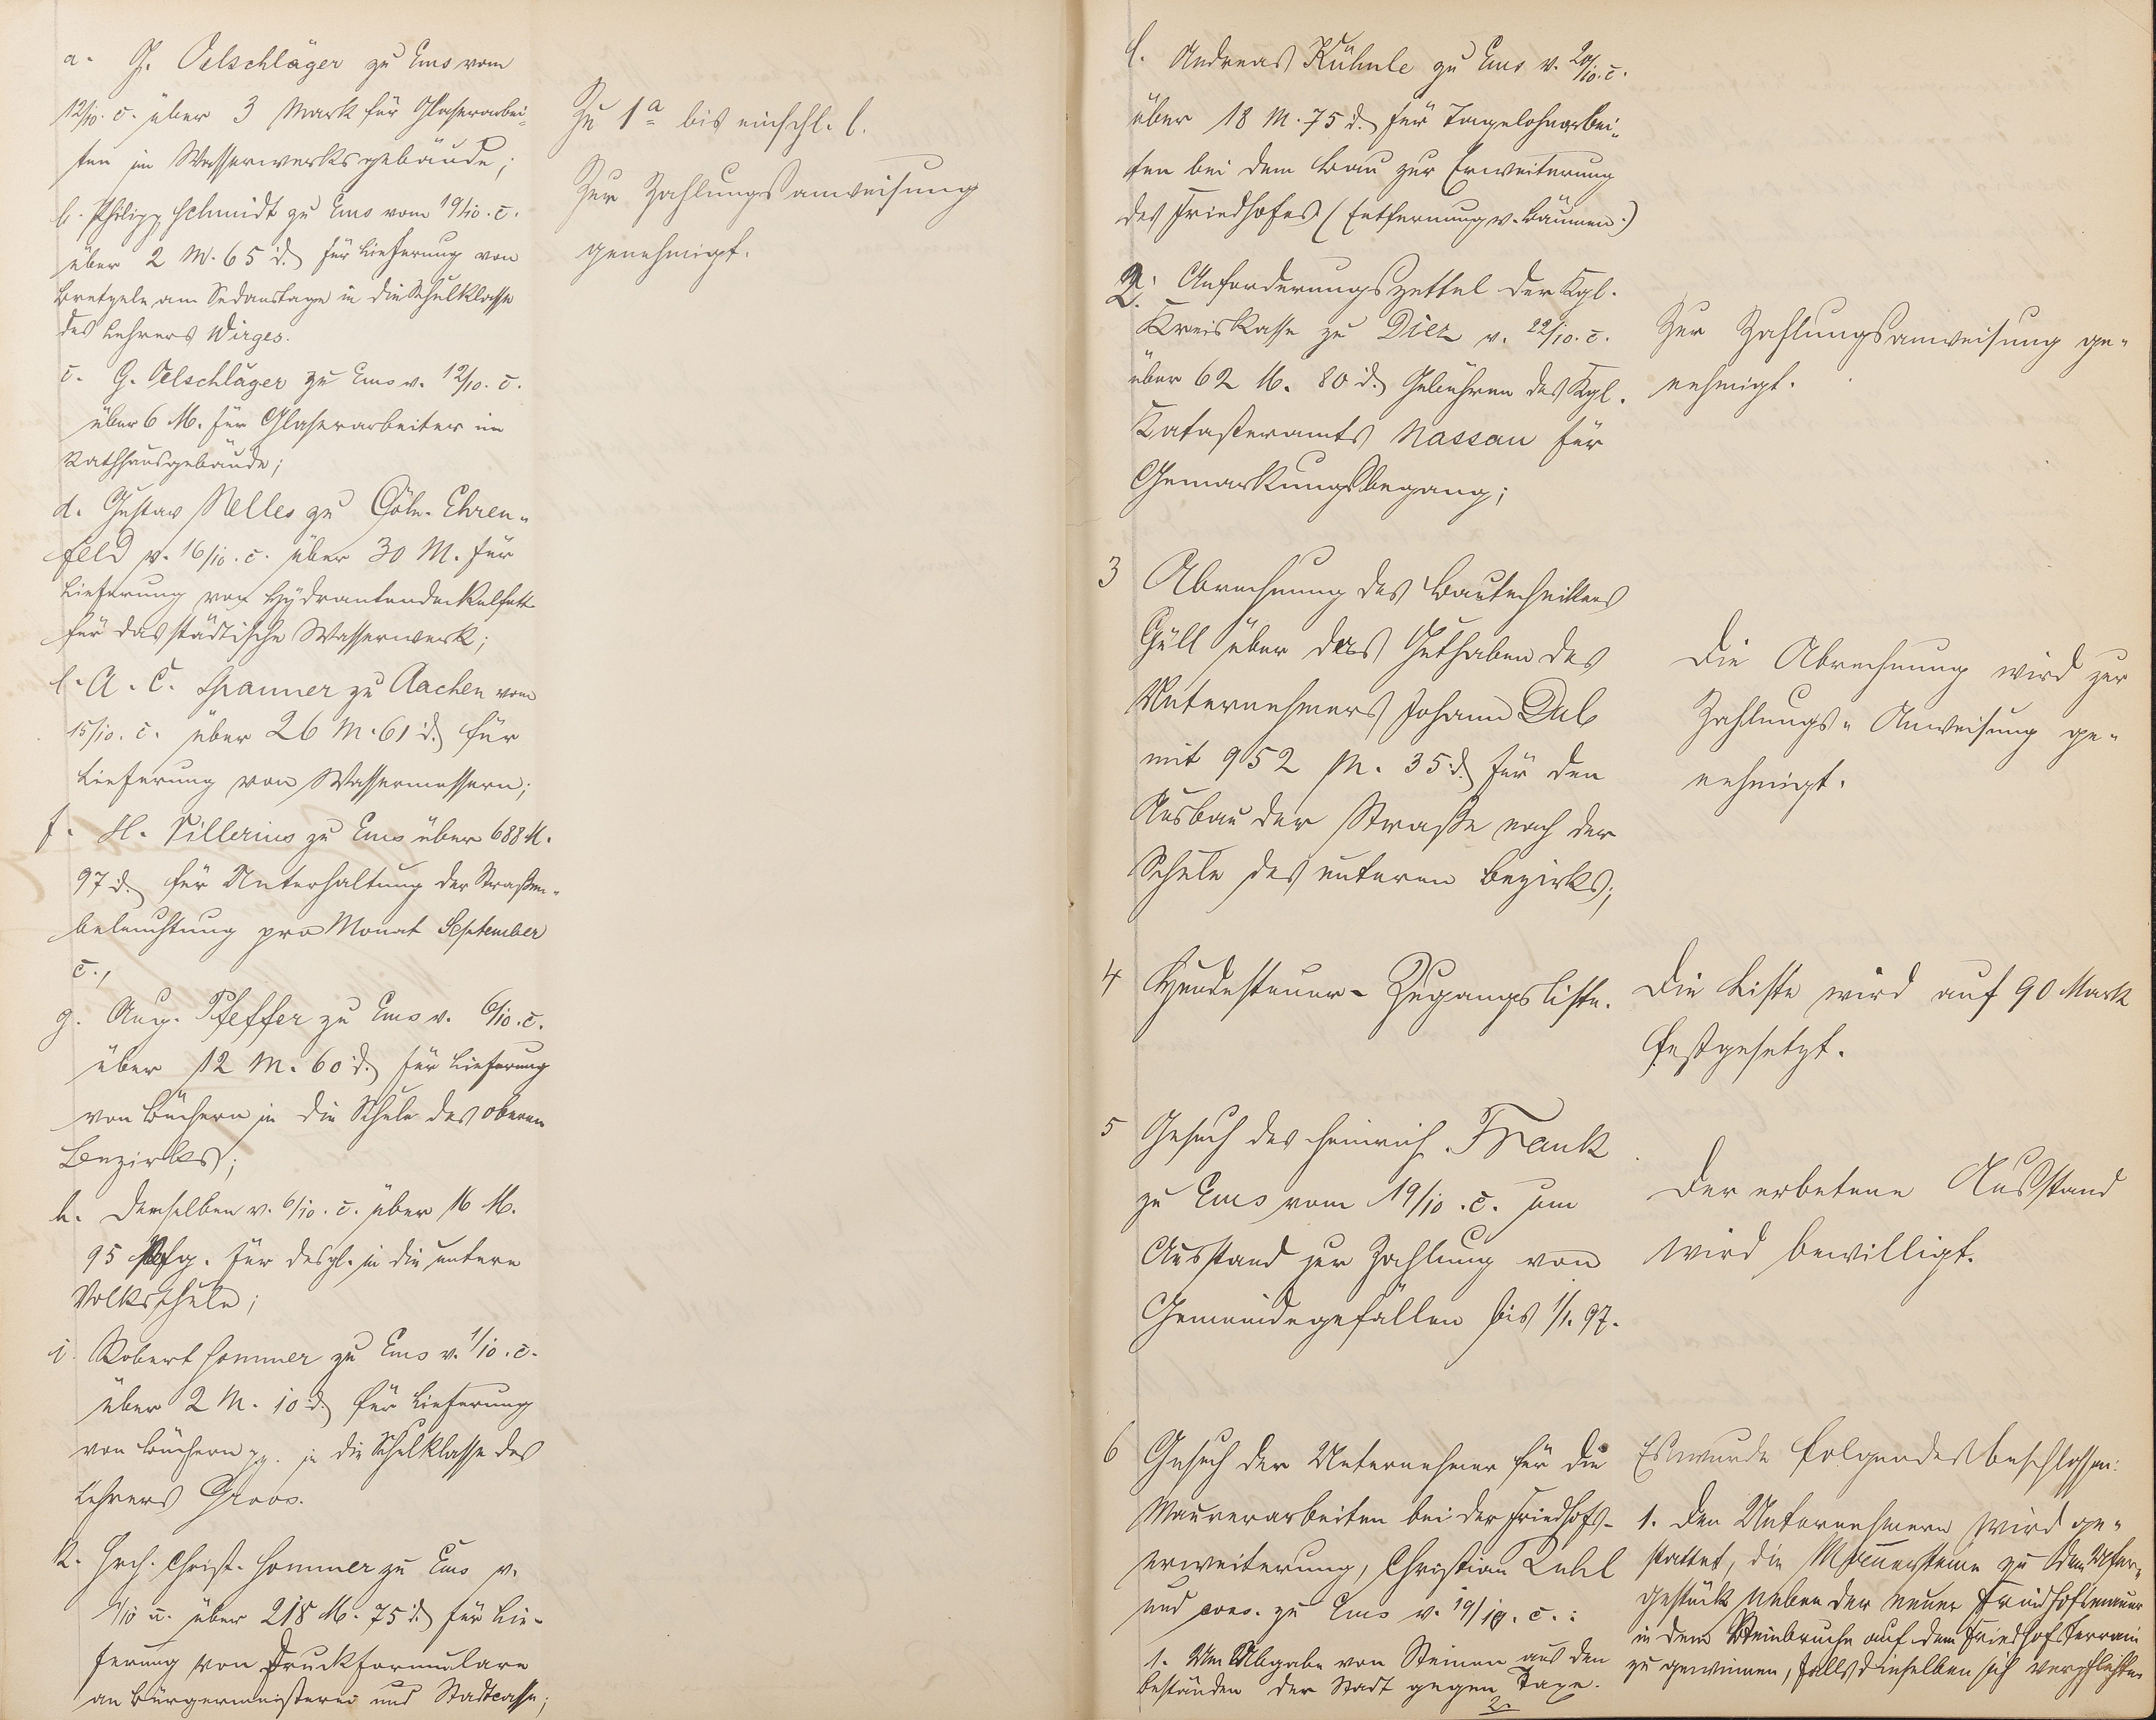 a. G. Oelschläger zu Ems vom
12/10. c. über 3 Mark für Glaserarbei-
ten im Wasserwerksgebäude;
b. Philipp Schmidt zu Ems vom 19/10. c.
über 2 M. 65 d. für Lieferung von
Bretzeln am Sedanstage in die Schulklasse
des Lehrers Wirges.
c. G. Oelschläger zu Ems v. 12/10. c.
über 6 M. für Glaserarbeiten im
Rathhausgebäude;
d. Gustav Nelles zu Cöln-Ehren-
feld v. 16/10. c. über 30 M. für
Lieferung von Hydrantendeckelfett
für das städtische Wasserwerk;
e. A. C. Spanner zu Aachen vom
15/10. c. über 26 M. 61 d. für
Lieferung von Wassermessern;
f. H. Villerius zu Ems über 688 M.
97 d. für Unterhaltung der Straßen-
beleuchtung pro Monat September
c.,
g. Aug. Pfeffer zu Ems v. 6/10. c.
über 12 M. 60 d. für Lieferung
von Büchern in die Schule des oberen
Bezirks;
h. Derselben v. 6/10. c. über 16 M.
95 Pfg. für desgl. in die untere
Volksschule;
i. Robert Sommer zu Ems v. 1/10. c.
über 2 M. 10 d. für Lieferung
von Büchern pp. in die Schulklasse des
Lehrers Groos.
k. Hrch. Christ. Sommer zu Ems v.
1/10 c. über 218 M. 75 d. für Lie-
ferung von Druckformulare
an Bürgermeisterei und Stadtcasse;
Zu 1a bis einschl. l.
Zur Zahlungsanweisung
genehmigt.
l. Andreas Kühnle zu Ems v. 20/10. c.
über 18 M. 75 d. für Tagelohnarbei-
ten bei dem Bau zur Erweiterung
des Friedhofes (Entfernung v. Bäumen.)
2. Anforderungszettel der Kgl.
Kreiskasse zu Diez v. 22/10. c.
über 62 M. 80 d. Gebühren des Kgl.
Katasteramts Nassau für
Gemarkungsbegang;
Zur Zahlungsanweisung ge-
nehmigt.
3 Abrechnung des Bautechnikers
Güll über das Guthaben des
Unternehmers Johann Dab
mit 952 M. 35 d. für den
Ausbau der Straße nach der
Schule des unteren Bezirks;
Die Abrechnung wird zur
Zahlungs-Anweisung ge-
nehmigt.
4 Hundesteuer-Zugangsliste.
Die Liste wird auf 90 Mark
festgesetzt.
5 Gesuch des Heinrich Frank
zu Ems vom 19/10. c. um
Ausstand zur Zahlung von
Gemeindegefällen bis 1/1. 97.
Der erbetene Ausstand
wird bewilligt.
6 Gesuch der Unternehmer für die
Maurerarbeiten bei der Friedhofs-
erweiterung, Christian
und cons. zu Ems v. 19/10. c.:
1. Um Abgabe von Steinen aus den
Beständen der Stadt gegen Taxe.
2.
Es wurde folgendes beschlossen:
1. Den Unternehmern wird ge-
stattet, die Mauersteine zu dem
neben der neuen Friedhofsmauer
in dem Steinbruche auf dem Friedhofsterrain
zu gewinnen, falls dieselben sich verpflichten